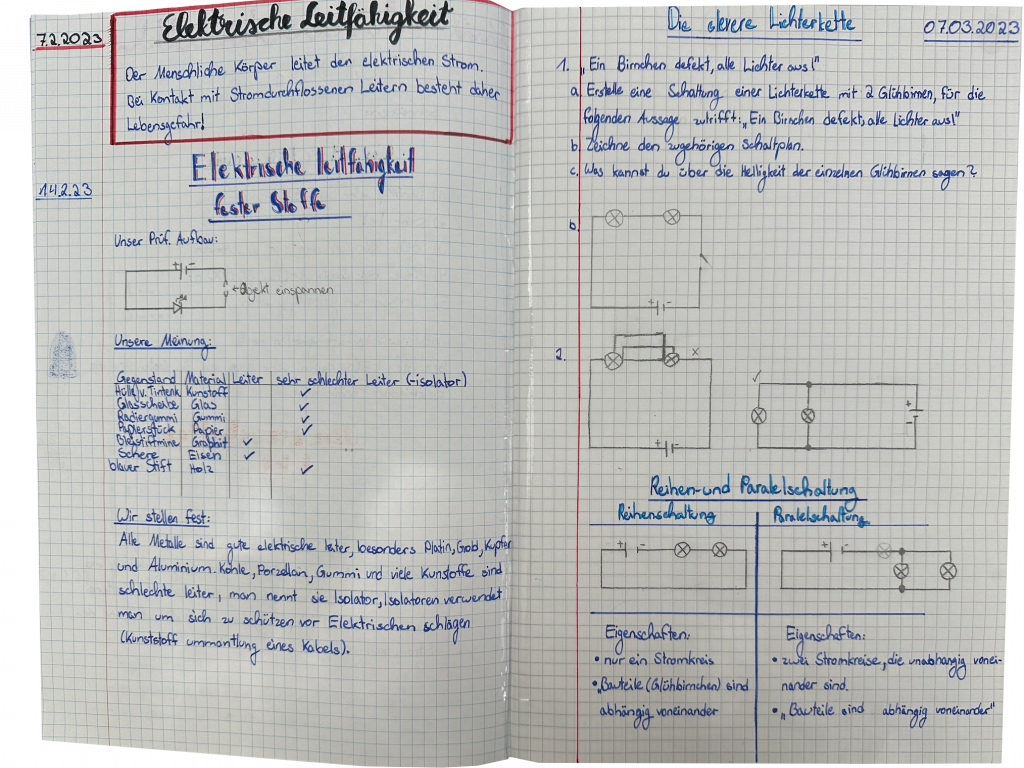 7.2.2023
Elektrische Leitfähigkeit
Der Menschliche Körper leitet den elektrischen Strom.
Bei Kontakt mit Stromdurchflossenen Leitern besteht daher
Lebensgefahr!
14.2.23
Elektrische leitfähigkeit
fester Stoffe
Unser Prüf. Aufbau:
+ -
←Objekt einspannen
Unsere Meinung:
Gegenstand Material Leiter sehr schlechter Leiter (-isolator)
Hülle v. Tintenk Kunstoff ✓
Glasscheibe Glas ✓
Radiergummi Gummi ✓
Papierstück Papier ✓
Bleistiftmine Graphit ✓
Schere Eisen ✓
blauer Stift Holz ✓
Wir stellen fest:
Alle Metalle sind gute elektrische leiter, besonders Platin, Gold, Kupfer
und Aluminium. Kohle, Porzellan, Gummi und viele Kunstoffe sind
schlechte leiter, man nennt sie Isolator, Isolatoren verwendet
man um sich zu schützen vor Elektrischen schlägen
(Kunststoff ummantlung eines Kabels).
Die clevere Lichterkette
07.03.2023
1. „Ein Birnchen defekt, alle Lichter aus!"
a, Erstelle eine Schaltung einer Lichterkette mit 2 Glühbirnen, für die
folgenden Aussage zutrifft: „Ein Birnchen defekt, alle Lichter aus!"
b, Zeichne den zugehörigen Schaltplan.
c, Was kannst du über die Helligkeit der einzelnen Glühbirnen sagen?
b,
+ -
2.
x
+ -
✓
+
-
Reihen-und Paralelschaltung
Reihenschaltung
Paralelschaltung
+ -
+ -
Eigenschaften:
• nur ein Stromkreis
• „Bauteile (Glühbirnchen) sind
abhängig voneinander
Eigenschaften:
• zwei Stromkreise, die unabhängig vonei-
nander sind.
• „Bauteile sind abhängig voneinander"